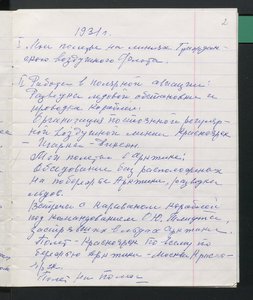 2
1931 г.
I. Мои полеты на линиях Граждан-
ского воздушного флота.
II Работа в полярной авиации:
Разведка ледовой обстановки и
проводка кораблей.
Организация постоянного регуляр-
ной воздушной линии Красноярск
- Игарка - Диксон.
Мои полеты в Арктике:
Обследование баз расположенных
на побережье Арктики, разведка
льдов.
Встреча с караваном кораблей
под командованием
застрявших в льдах Арктики.
Полет - Красноярск по всему по
бережью Арктики - Москва.
Полет на Полюс